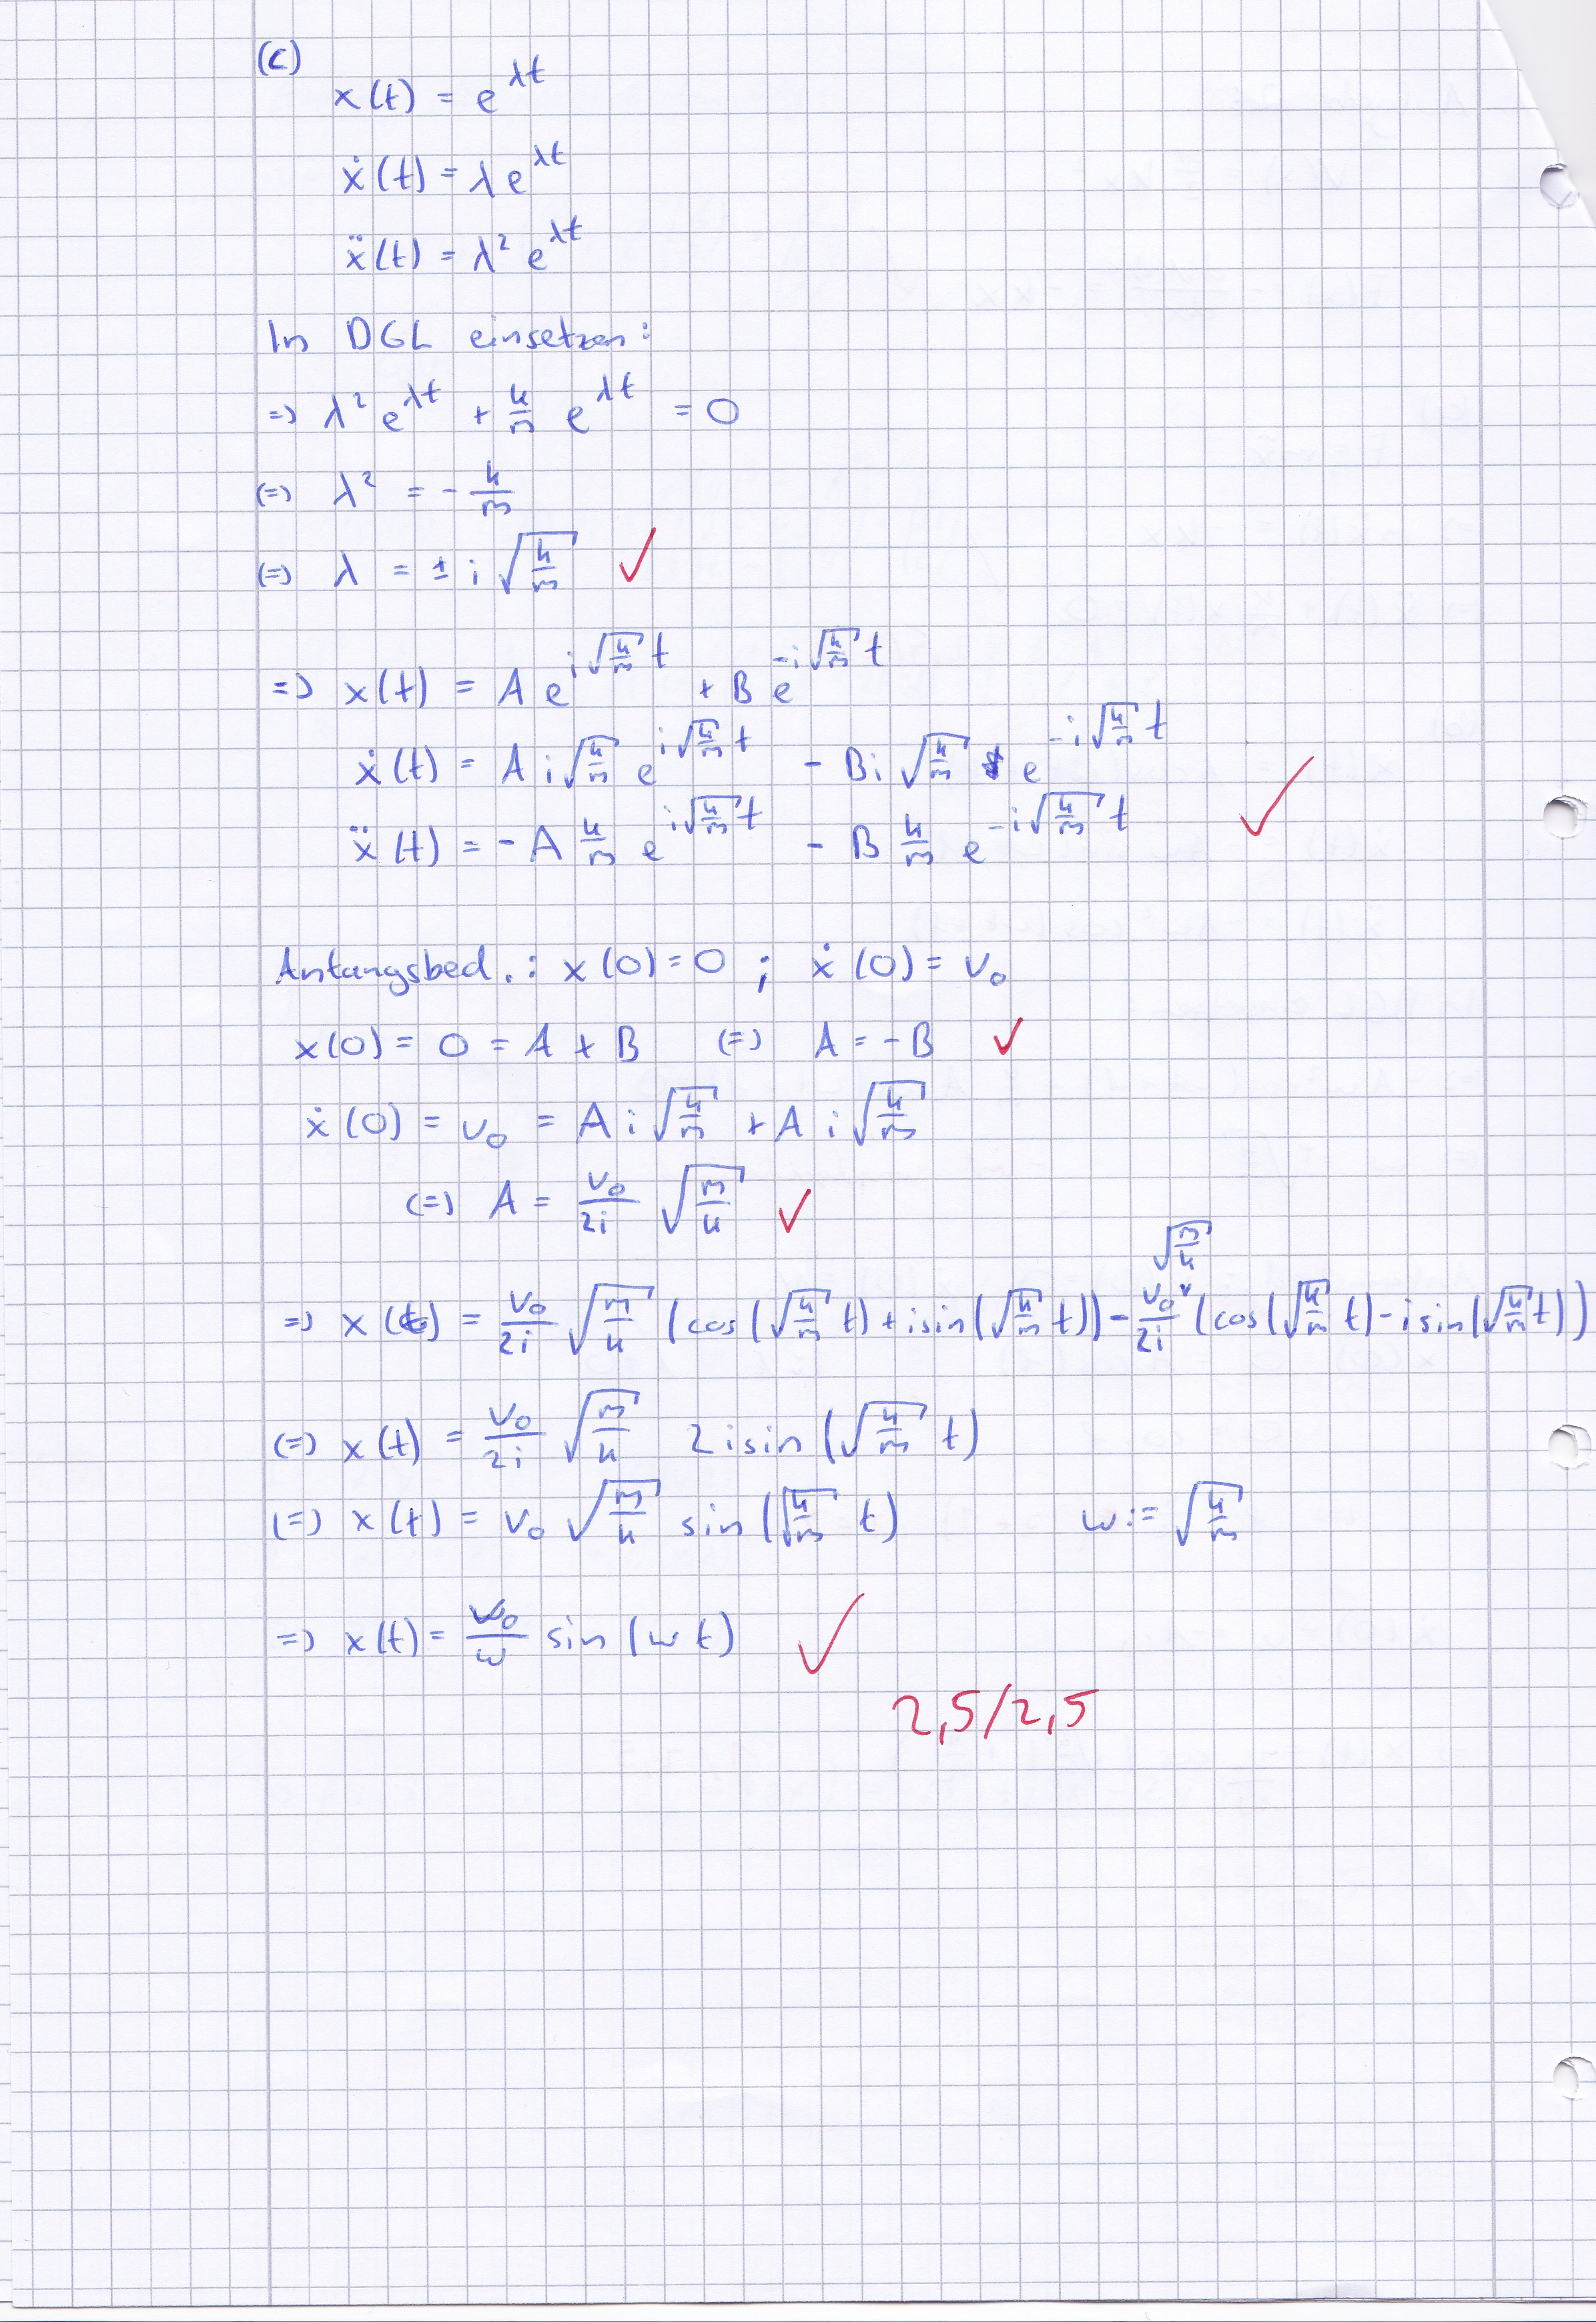 (c)
x(t) = e^{λt}
ẋ(t) = λ e^{λt}
ẍ(t) = λ² e^{λt}
In DGL einsetzen:
=> λ² e^{λt} + k/m e^{λt} = 0
(=) λ² = - k/m
(=) λ = ± i √(k/m) ✓
=> x(t) = A e^{i√(k/m) t} + B e^{-i√(k/m) t}
ẋ(t) = A i √(k/m) e^{i√(k/m) t} - B i √(k/m) e^{-i√(k/m) t}
ẍ(t) = - A k/m e^{i√(k/m) t} - B k/m e^{-i√(k/m) t} ✓
Anfangsbed.: x(0) = 0 ; ẋ(0) = v₀
x(0) = 0 = A + B (=) A = - B ✓
ẋ(0) = v₀ = A i √(k/m) + A i √(k/m)
(=) A = v₀/2i √(m/k) ✓
=> x(t) = v₀/2i √(m/k) (cos(√(k/m) t) + i sin(√(k/m) t)) - v₀/2i √(m/k) (cos(√(k/m) t) - i sin(√(k/m) t))
(=) x(t) = v₀/2i √(m/k) 2 i sin(√(k/m) t)
(=) x(t) = v₀ √(m/k) sin(√(k/m) t) ω := √(k/m)
=> x(t) = v₀/ω sin(ω t) ✓
2,5/2,5